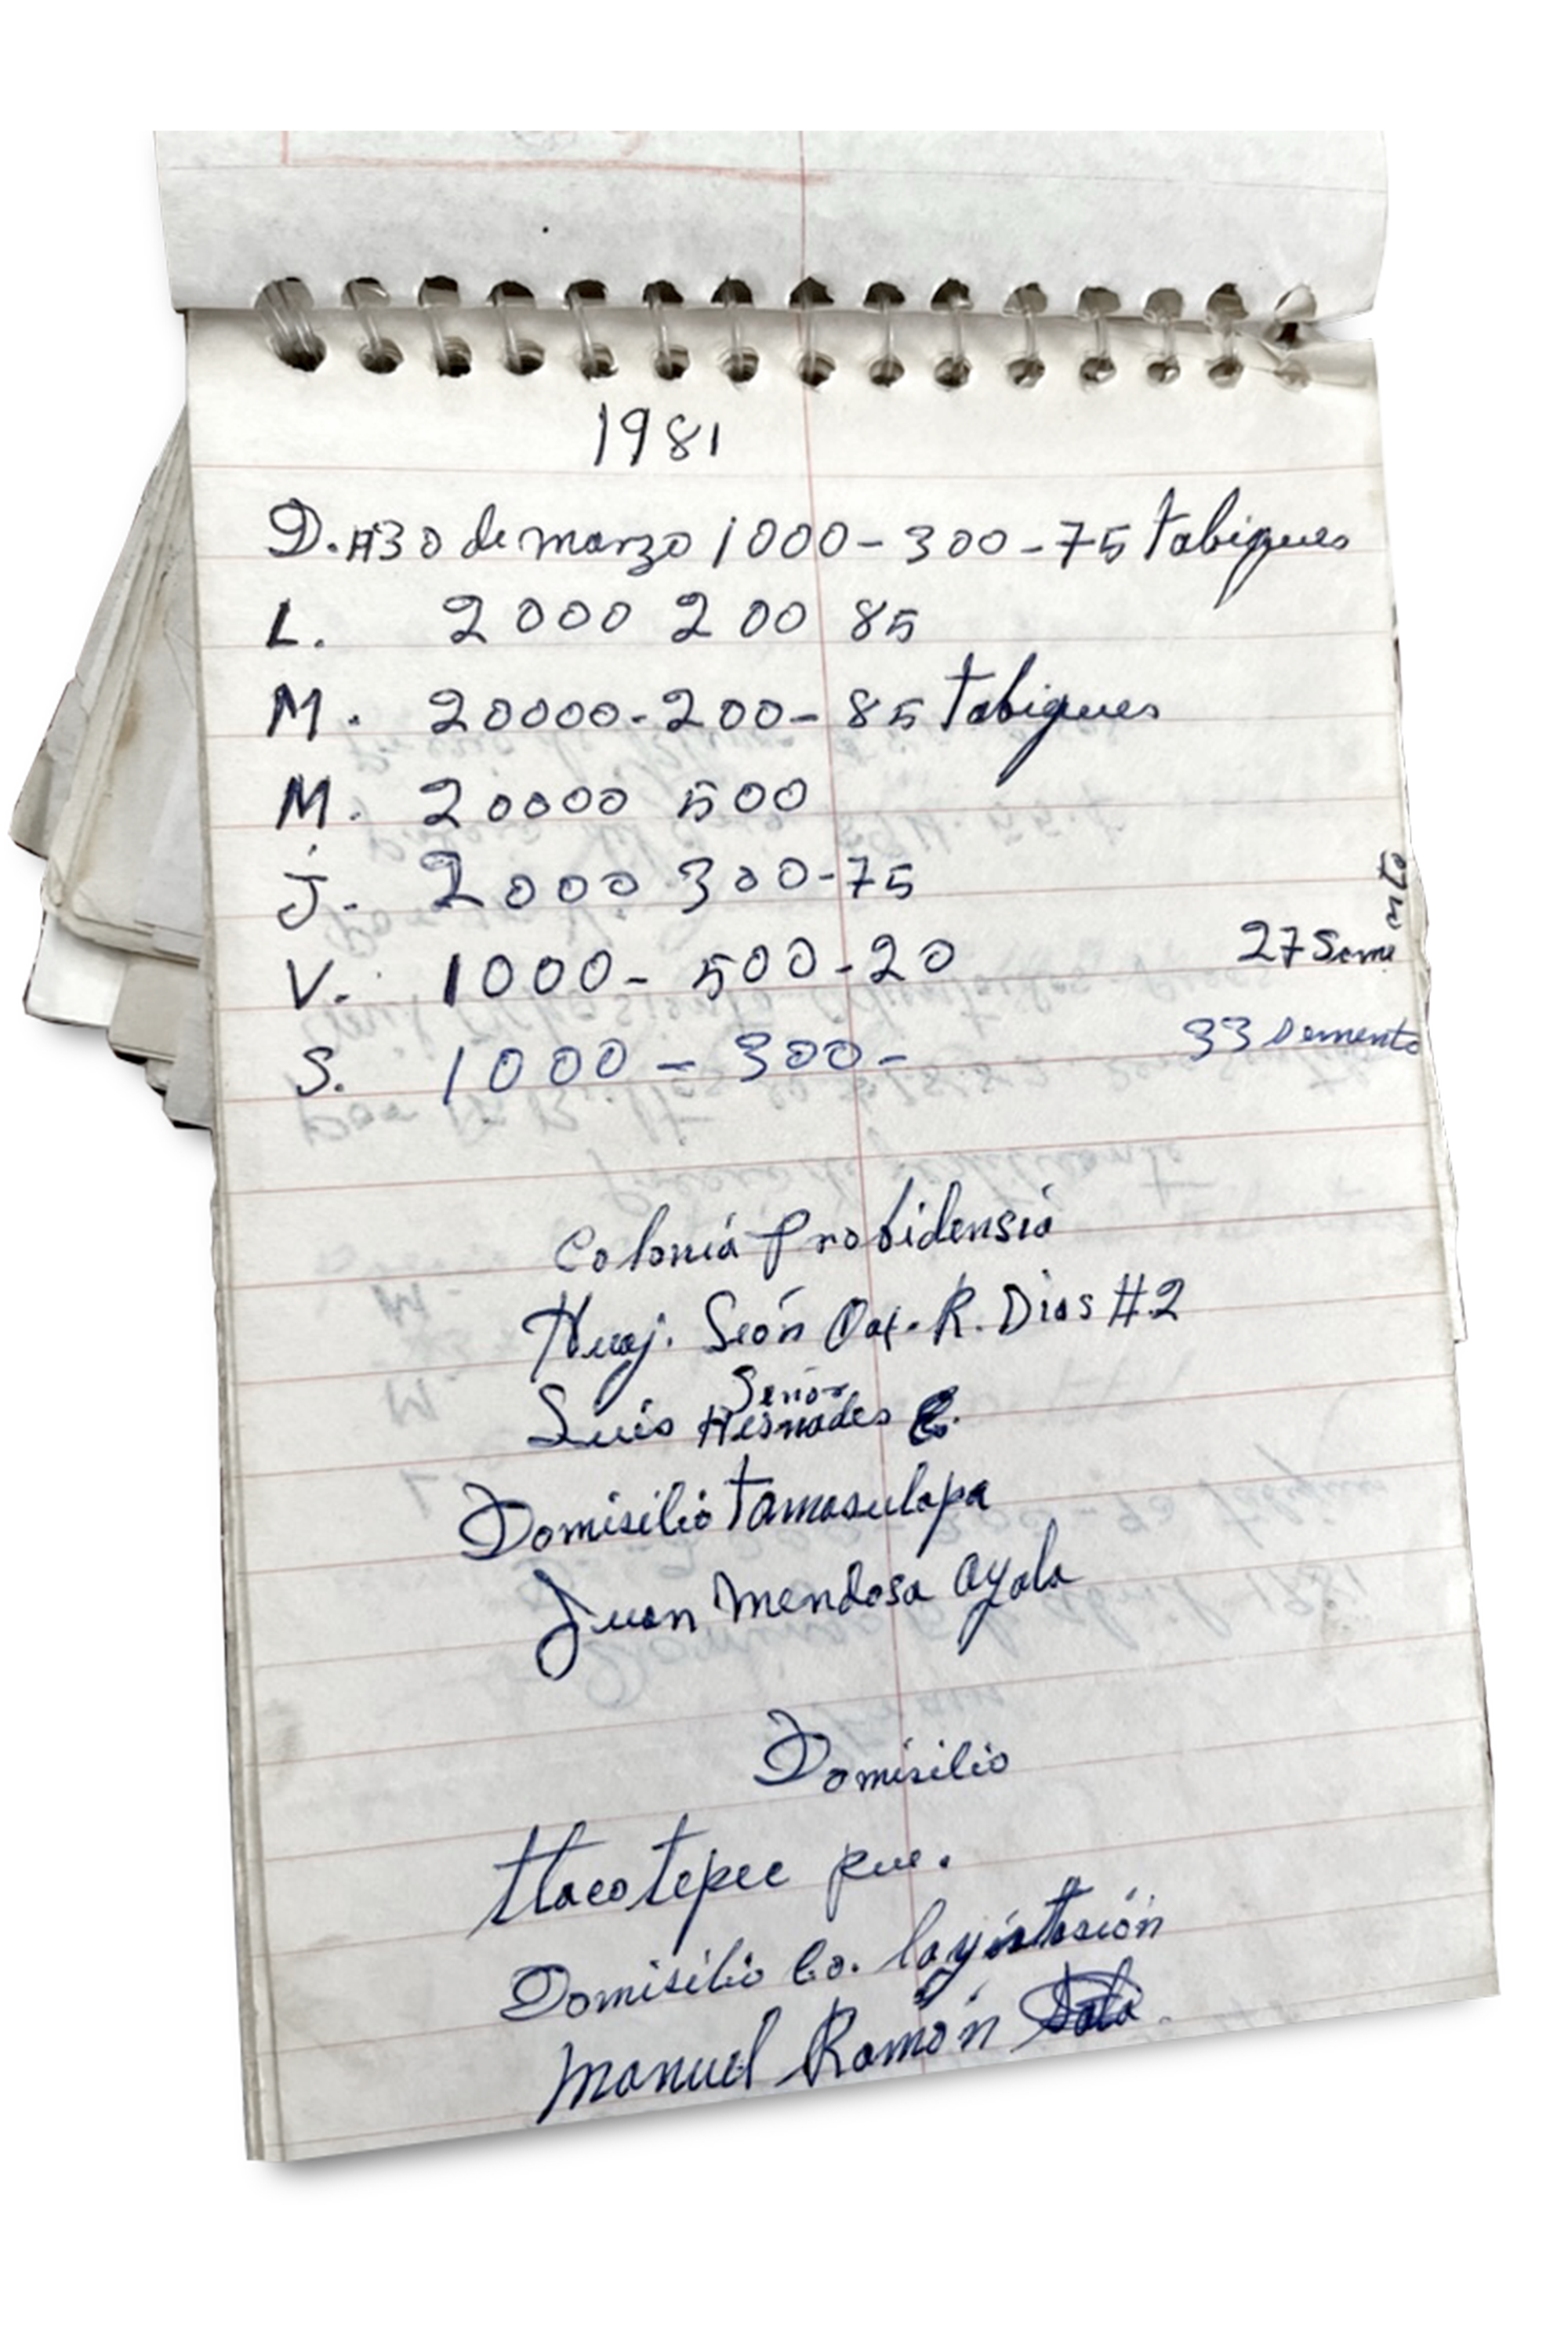 1981
D. #30 de marzo 1000 - 300 - 75 tabiques
L. 2000 200 85
M. 20000 - 200 - 85 tabiques
M. 20000 500
J. 2000 300 - 75
V. 1000 - 500 - 20 27 Semento
S. 1000 - 300 - 33 Semento
Colonia Probidensia
Huaj. Seón Oax. R. Dias #2
Señor
Luis Hesnades
Domisilio tamasulapa
Juan Mendosa ayala
Domisilio
tlacotepec pue.
Domisilio
Manuel Ramón